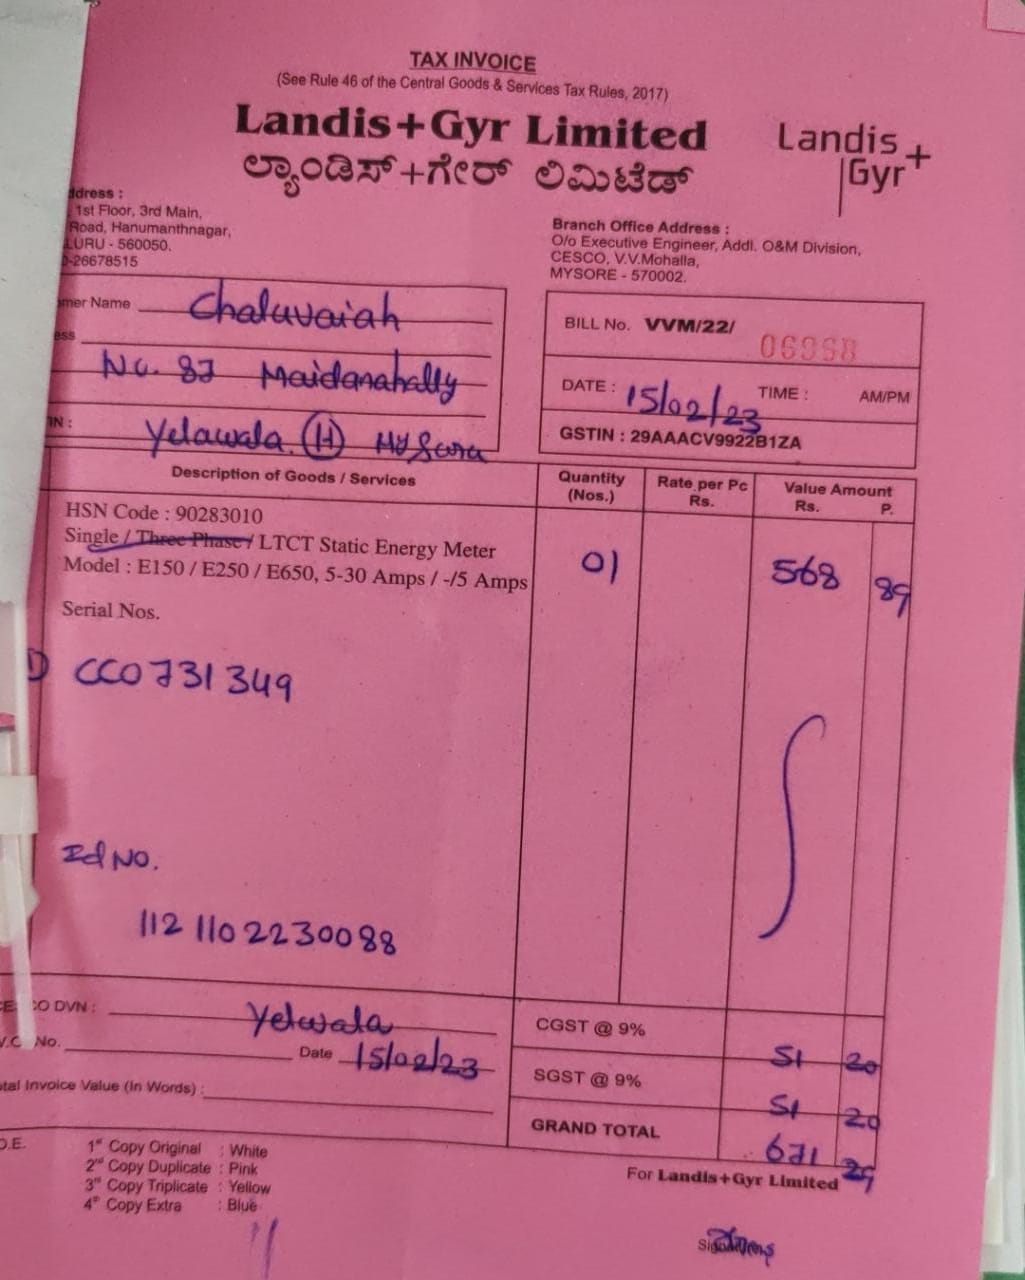 TAX INVOICE
(See Rule 46 of the Central Goods & Services Tax Rules, 2017)
Landis+Gyr Limited
ಲ್ಯಾಂಡಿಸ್+ಗೇರ್ ಲಿಮಿಟೆಡ್
Landis+
Gyr
ddress :
1st Floor, 3rd Main,
Road, Hanumanthnagar,
LURU - 560050.
-26678515
Branch Office Address :
O/o Executive Engineer, Addl. O&M Division,
CESCO, V.V.Mohalla,
MYSORE - 570002.
mer Name Chaluvaiah
ess
No. 87 Maidanahally
IN : Yelawala (H) Mysore
BILL No. VVM/22/
DATE : 15/02/23 TIME : AM/PM
GSTIN : 29AAACV9922B1ZA
Description of Goods / Services Quantity (Nos.) Rate per Pc Rs. Value Amount Rs. P.
HSN Code : 90283010
Single / Three Phase / LTCT Static Energy Meter 01 568 89
Model : E150 / E250 / E650, 5-30 Amps / -/5 Amps
Serial Nos.
1) CC0731349
Id No.
112 110 2230088
CO DVN : Yelwala
No. Date 15/02/23
CGST @ 9% 51 20
SGST @ 9% 51 20
GRAND TOTAL 671 29
tal Invoice Value (In Words) :
O.E.
1st Copy Original : White
2nd Copy Duplicate : Pink
3rd Copy Triplicate : Yellow
4th Copy Extra : Blue
For Landis+Gyr Limited